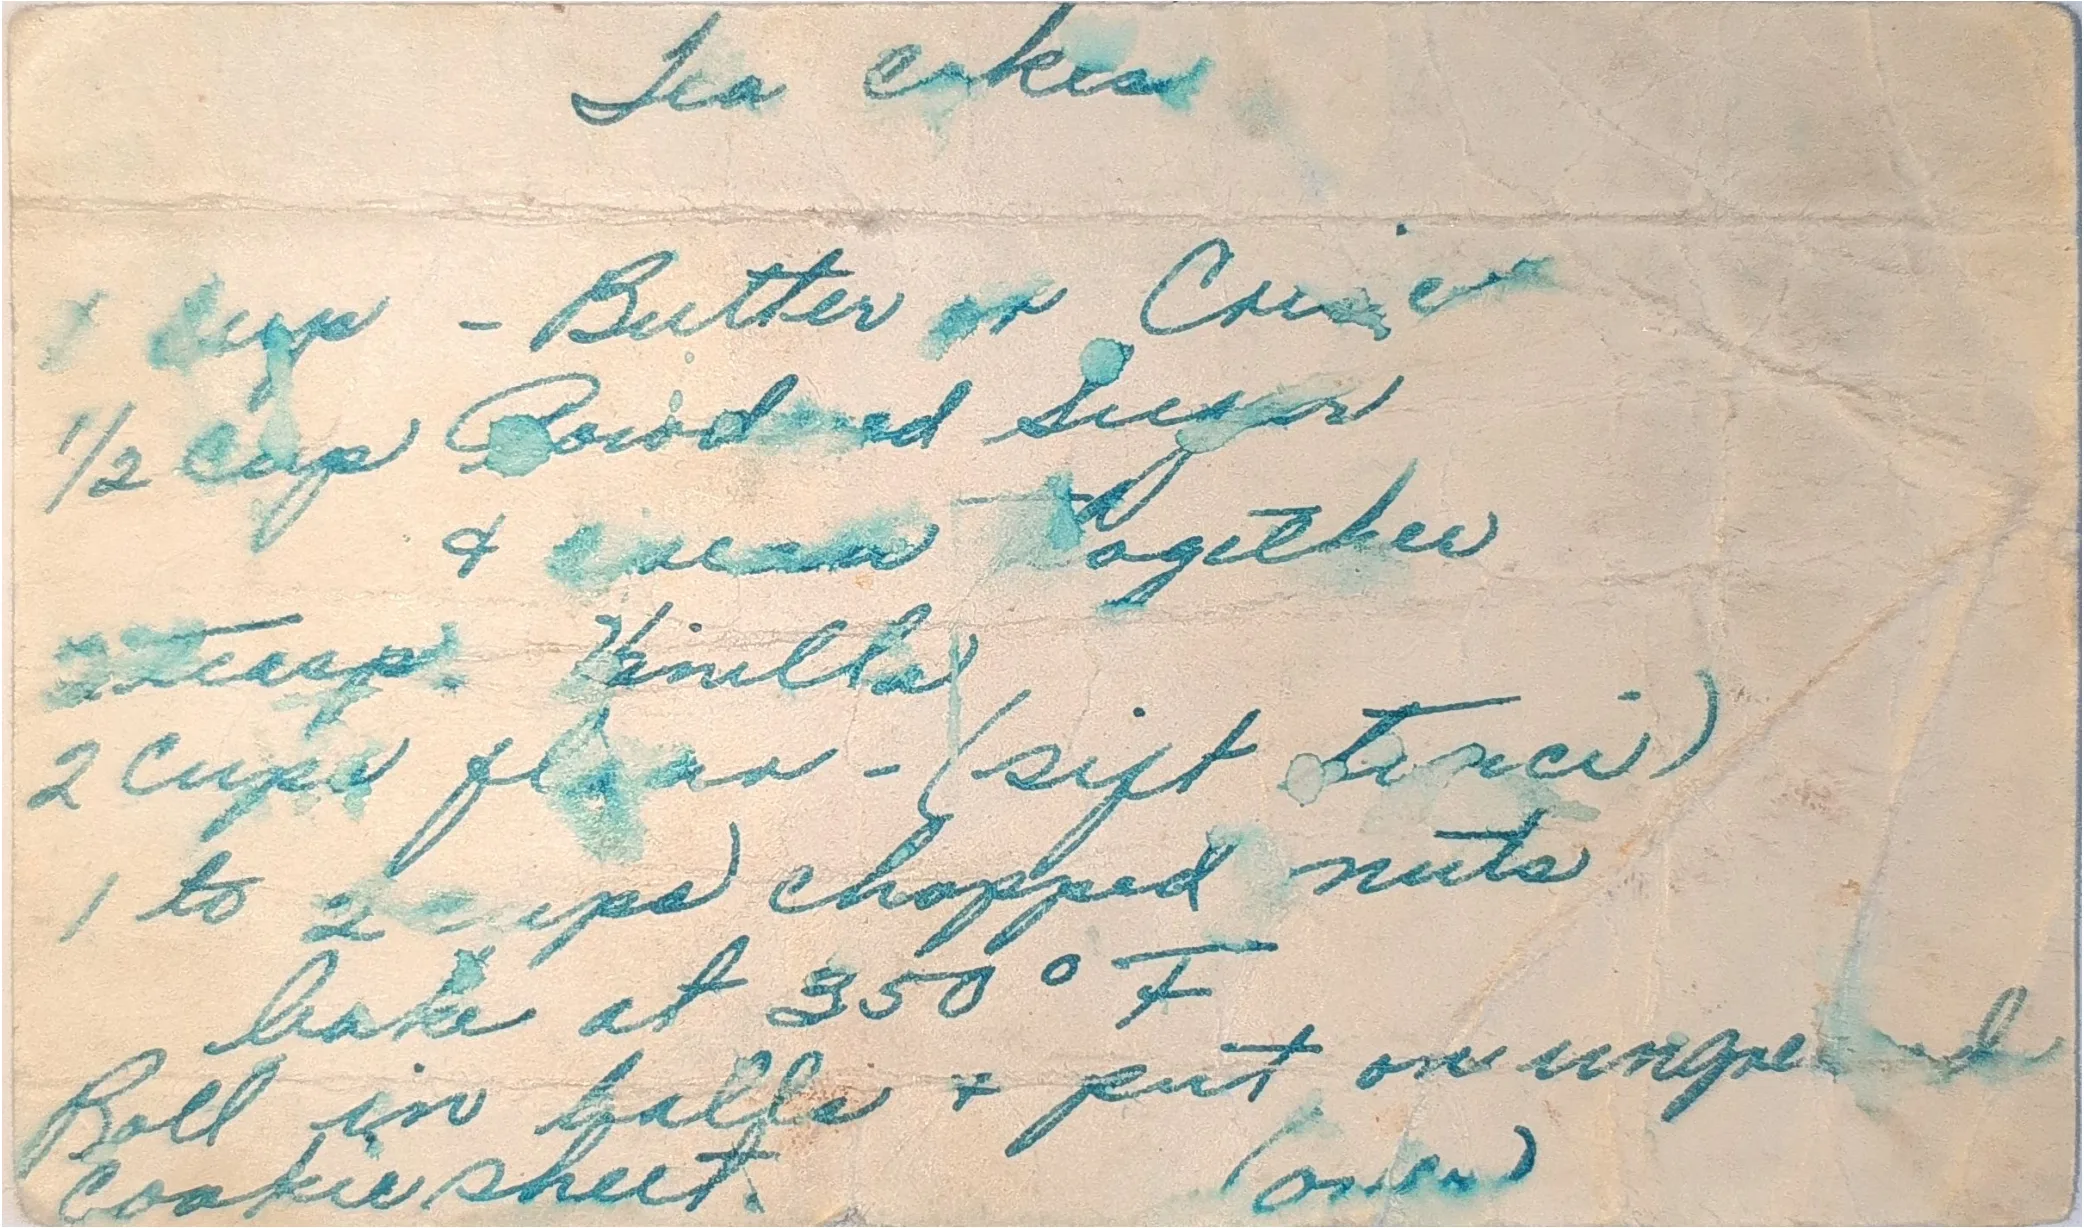 Tea cakes
1 cup - Butter or Crisco
1/2 Cup Powdered Sugar
& cream together
2 Teasp. Vanilla
2 Cups flour - (sift twice)
1 to 2 cups chopped nuts
bake at 350° F
Roll in balls & put on ungreased
cookie sheet. (over)